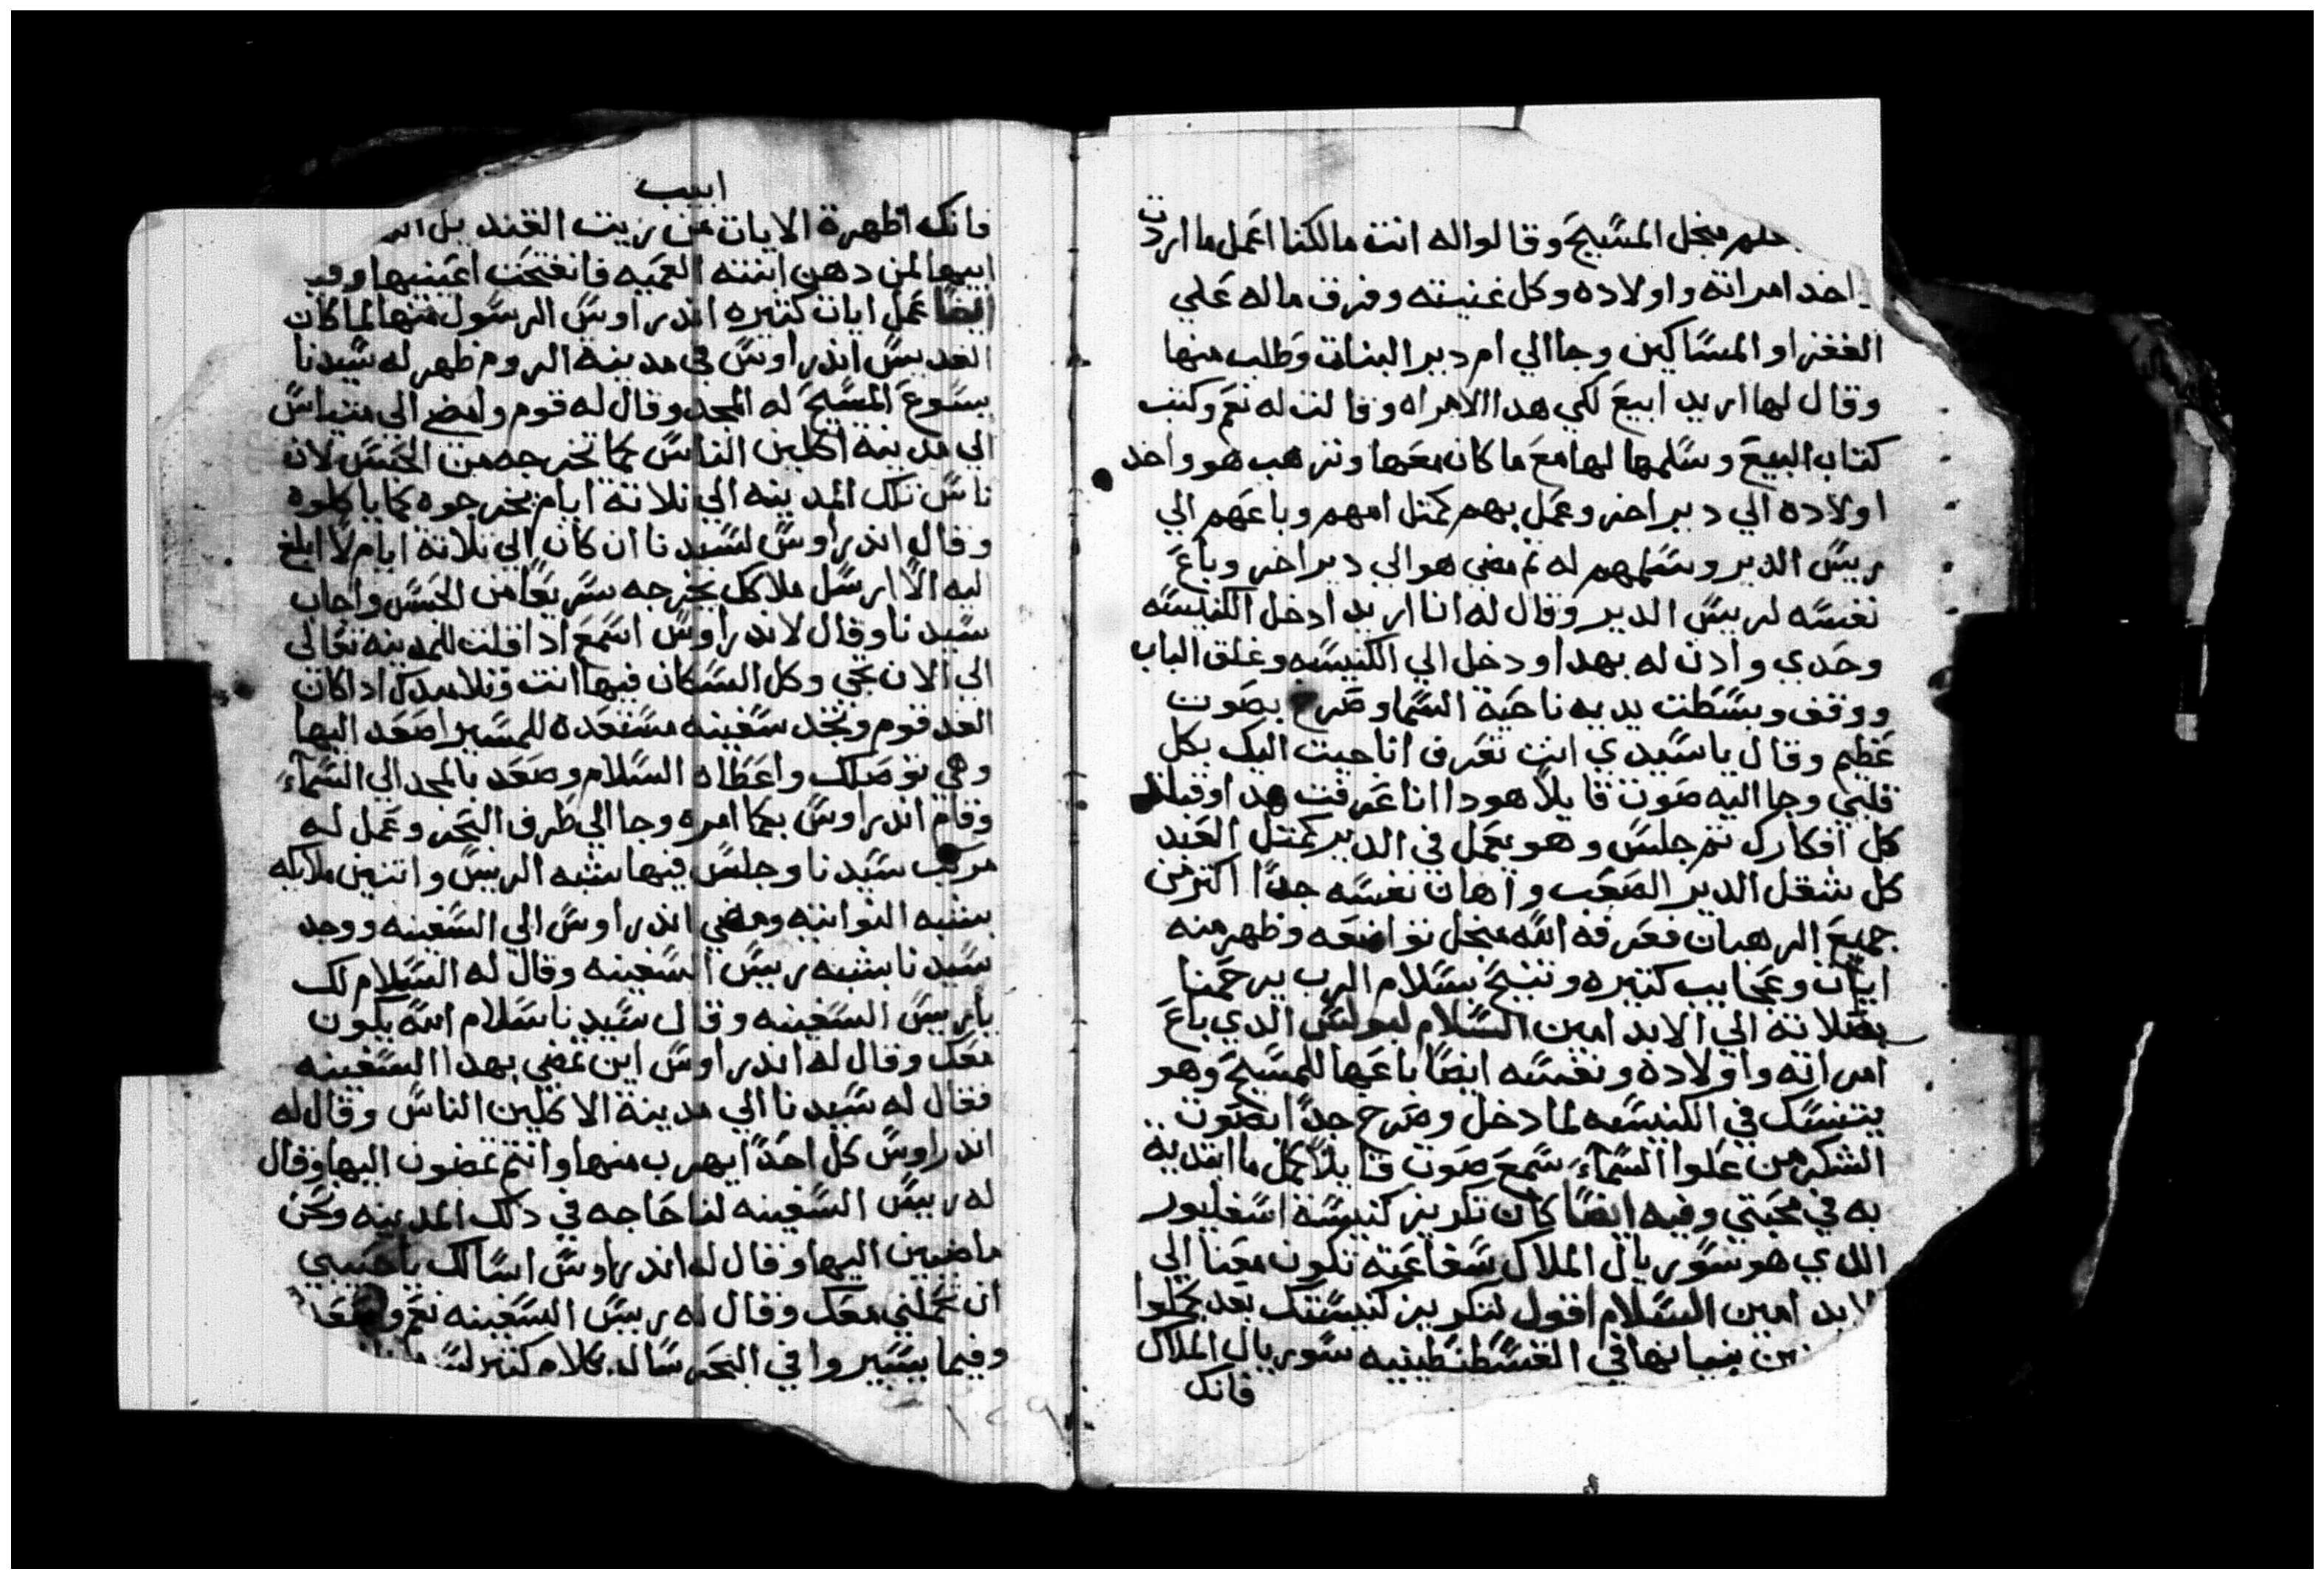 منجل المسَيحَ وقالواله انت مالكنا اعَمل ما اردت
اخد امراته واولاده وكل غنيته وفرق ماله عَلي
الففرا والمسَاكين وجاالي ام دير البنات وَطلب منها
وقال لها اريد ابيعَ لكي هداالامراه وقالت له نعَم وكتب
كتاب البيعَ وسَلمها لها معَ ما كان معَها وترهب هو واخد
اولاده الي دير اخر وعمَل بهم كمتل امهم وباعَهم الي
رييسَ الدير وسَلمهم له تم مضي هوالي دير اخر وباعَ
نفسَه لرييسَ الدير وقال له انا اريد ادخل الكنيسَه
وحَدي وادن له بهدا ودخل الي الكنيسَه وغلق الباب
ووقف وبسَطت يديه ناحَية السَما وصَرخ بصَوت
عَظيم وقال ياسَيدي انت تعَرف انا جيت اليك بكل
قلبي وجااليه صَوت قايلاً هودا انا عَرفت هدا وقبلت
كل افكارك تم جلسَ وهو يعَمل في الدير كمتل العَبد
كل شغل الدير الصَعَب واهان نفسَه جداً اكتر من
جميعَ الرهبان فعَرفه الله منجل تواضعَه وظهر منه
ايات وعَجايب كتيره وتنيحَ بسَلام الرب يرحَمنا
بصَلاته الي الابد امين السَلام لبولسَ الدي باعَ
امراته واولاده ونفسَه ايضاً باعَها للمسَيحَ وهو
يتنسَك في الكنيسَه لما دخل وصَرخ جداً بصَوت
الشكر من عَلوا السَماءَ سَمعَ صَوت قايلاً كمل ما ابتديت
به في محَبتي وفيه ايضاً كان تكريز كنيسَة اسَفليور
اللدي هو سَوريال الملاك سَفاعَته تكون معَنا الي
الابد امين السَلام اقول لتكريز كنيسَتك بعَد يكملوا
بنيانها في القسَطنطينيه سَوريال الملاك
فانك
ابيب
فانك اظهرة الايات من زيت القنديل
ابيها لمن دهن ابنته العَميه فانفتحَت اعَينيها وفيه
ايضاً عَمل ايات كتيره اندراوسَ الرسَول منها لما كان
القديسَ اندراوسَ في مدينة الروم ظهر له سَيدنا
يسَوعَ المسَيحَ له المجد وقال له قوم وامض الي متياسَ
الي مدينة اكلين الناسَ كما تخرجه من الحَبسَ لان
ناسَ تلك المدينه الي تلاتة ايام يخرجوه كما ياكلوه
وقال اندراوسَ لسَيدنا ان كان الي تلاتة ايام لا ابلغ
ليه الا ارسَل ملاكك يخرجه سَريعَا من الحَبسَ واجاب
سَيدنا وقال لاندراوسَ اسَمعَ ادا قلت للمدينه تعَالي
الي الان تجي وكل السَكان فيها انت وتلاميدك ادا كان
الغد قوم وتجد سَفينه مسَتعَده للمسَير اصَعَد اليها
وهي توصَلك واعَطاه السَلام وصَعَد بالمجد الي السَماءَ
وقام اندراوسَ بكما امره وجاالي طرف البحَر وعَمل له
مركب سَيدنا وجلسَ فيها شبه الرييسَ واتنين ملايكه
بشبه النواتيه ومضي اندراوسَ الي السَفينه ووجد
سَيدنا بشبه رييسَ السَفينه وقال له السَلام لك
يارييسَ السَفينه وقال سَيدنا سَلام الله يكون
معَك وقال له اندراوسَ اين تمضي بهدا السَفينه
فقال له سَيدنا الي مدينة الاكلين الناسَ وقال له
اندراوسَ كل احَداً يهرب منها وانتم تمضون اليها وقال
له رييسَ السَفينه لنا حَاجه في دلك المدينه ونحَن
ماضيين اليها وقال له اندراوسَ اسَالك ياحَبيبي
ان تحَملني معَك وقال له رييسَ السَفينه نعَم
وفيما يسَيروا في البحَر سَاله بكلام كتير
١٢٩